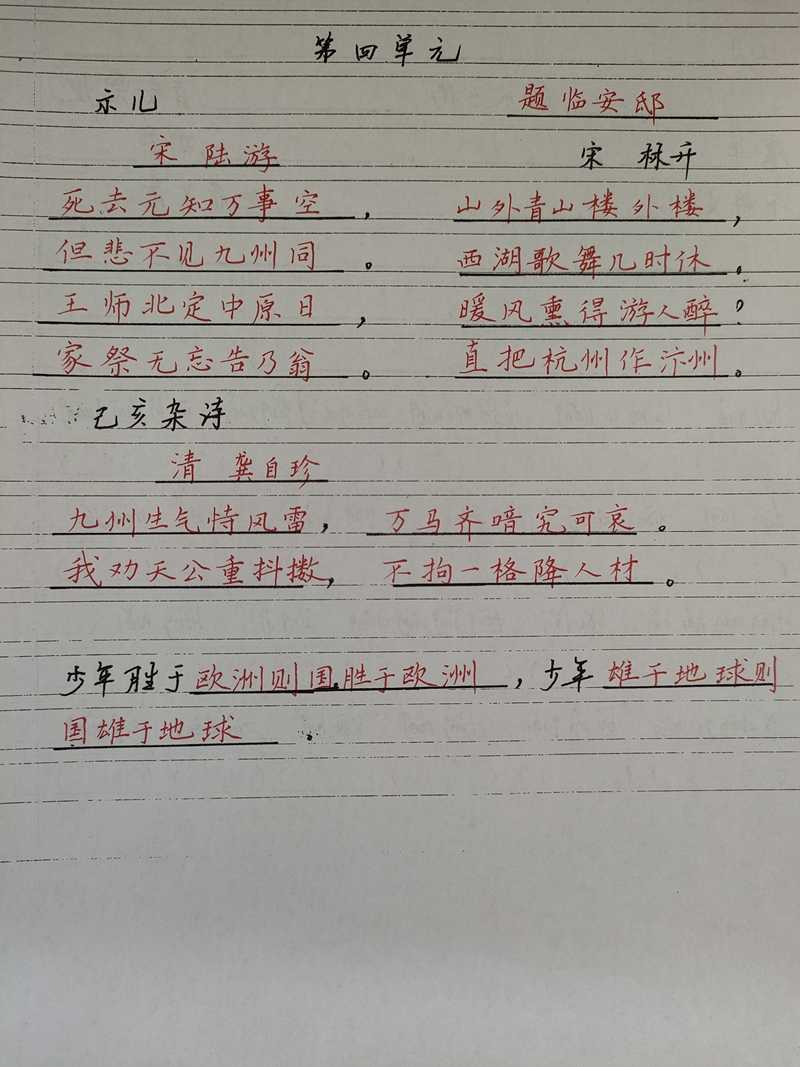 第四单元
示儿
宋 陆游
死去元知万事空，
但悲不见九州同。
王师北定中原日，
家祭无忘告乃翁。
题临安邸
宋 林升
山外青山楼外楼，
西湖歌舞几时休。
暖风熏得游人醉？
直把杭州作汴州。
己亥杂诗
清 龚自珍
九州生气恃风雷，万马齐喑究可哀。
我劝天公重抖擞，不拘一格降人材。
少年胜于欧洲则国胜于欧洲，少年雄于地球则
国雄于地球。